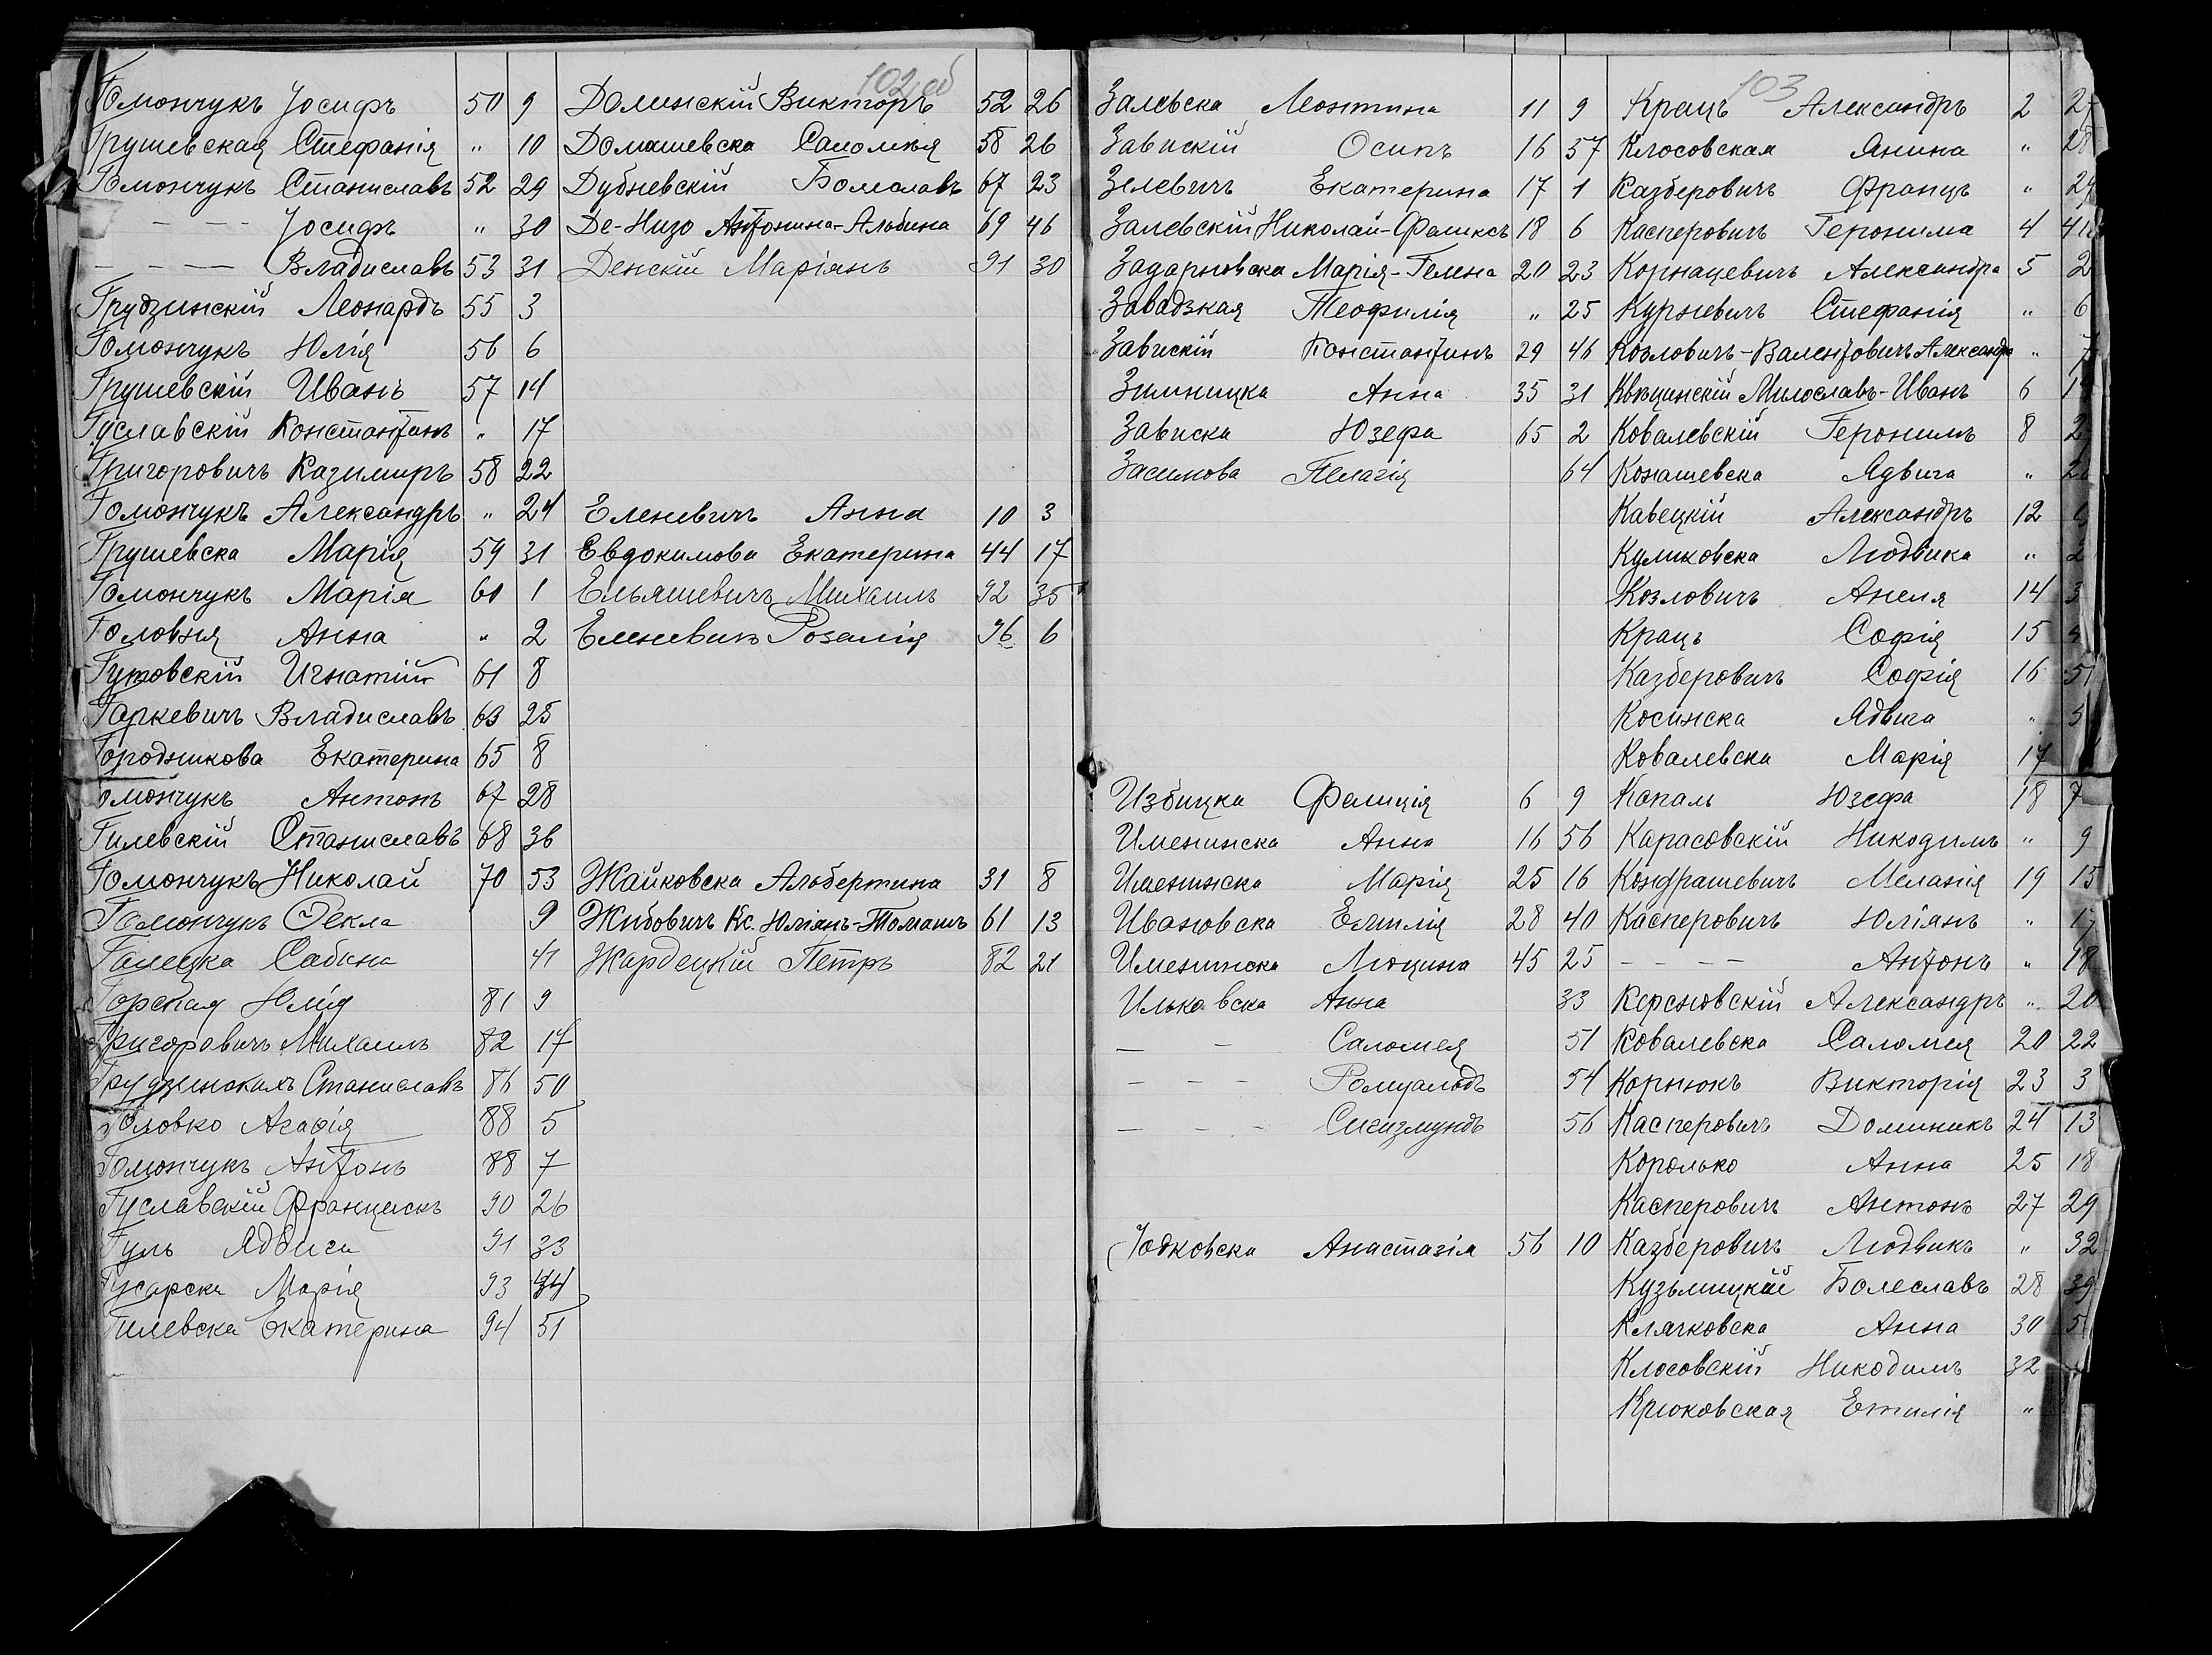 102 об
Гомончукъ Іосифъ 50 9
Грушевская Стефанія " 10
Гомончукъ Станиславъ 52 29
– – – Іосифъ " 30
– – – Владиславъ 53 31
Грудзинскій Леонардъ 55 3
Гомончукъ Юлія 56 6
Грушевскій Иванъ 57 14
Гуславскій Константинъ " 17
Григоровичъ Казимиръ 58 22
Гомончукъ Александръ " 24
Грушевска Марія 59 31
Гомончукъ Марія 60 1
Головня Анна " 2
Гутовскій Игнатій 61 8
Гаркевичъ Владиславъ 63 25
Городникова Екатерина 65 8
Гомончукъ Антонъ 67 28
Гилевскій Станиславъ 68 36
Гомончукъ Николай 70 53
Гомончукъ Текла 9
Галецка Сабина 41
Горская Юлія 81 9
Григоровичъ Михаилъ 82 17
Станиславъ 86 50
Головко Агафія 88 5
Гомончукъ Антонъ 88 7
Гуславскій Францискъ 90 26
Гуль Ядвига 91 33
Гусарска Марія 93 44
Гилевска Екатерина 94 51
Долинскій Викторъ 52 26
Домашевска Саломея 58 26
Дубневскій Болеславъ 67 23
Де-Низо Антонина-Альбина 69 46
Денскій Маріянъ 91 30
Еленевичъ Анна 10 3
Евдокимова Екатерина 44 17
Ельяшевичъ Михаилъ 92 35
Еленевичъ Розалія 96 6
Жайковска Альбертина 31 8
Жибовичъ Кс. Юліанъ-Томашъ 61 13
Жардецкій Петръ 82 21
103
Залевска Леонтина 11 9
Завискій Осипъ 16 57
Зелевичъ Екатерина 17 1
Залевскій Николай-Феликсъ 18 6
Задарновска Марія-Гелена 20 23
Завадзкая Теофилія " 25
Завискій Константинъ 29 46
Зимницка Анна 35 31
Зависка Юзефа 65 2
Засимова Пелагія 64
Избицка Фелиція 6 9
Именинска Анна 16 56
Именинска Марія 25 16
Ивановска Емилія 28 40
Именинска Люцина 45 25
Ильковска Анна 33
– – Саломея 51
– – – Ромуальдъ 54
– – – Сигизмундъ 56
Іодковска Анастазія 56 10
Крацъ Александръ 2 27
Клосовская Янина " 28
Казберовичъ Францъ " 29
Касперовичъ Геронима 4
Корнацевичъ Александра 5 2
Курневичъ Стефанія " 6
Козловичъ-Валентовичъ Александра " 7
Квѣцинскій Милославъ-Иванъ 6
Ковалевскій Геронимъ 8
Конашевска Ядвига "
Кавецкій Александръ 12
Куликовска Людвика "
Козловичъ Анеля 14 3
Крацъ Софія 15
Казберовичъ Софія 16
Косинска Ядвига "
Ковалевска Марія 17
Копаль Юзефа 18 7
Карасовскій Никодимъ " 9
Кондрашевичъ Меланія 19 15
Касперовичъ Юліянъ " 17
– – – – Антонъ " 18
Керсновскій Александръ " 20
Ковалевска Саломея 20 22
Корнюкъ Викторія 23 3
Касперовичъ Доминикъ 24 13
Королько Анна 25 18
Касперовичъ Антонъ 27 29
Казберовичъ Людвикъ " 32
Кузьмицкій Болеславъ 28 39
Клячковска Анна 30 5
Клосовскій Никодимъ 32
Крюковская Емилія "